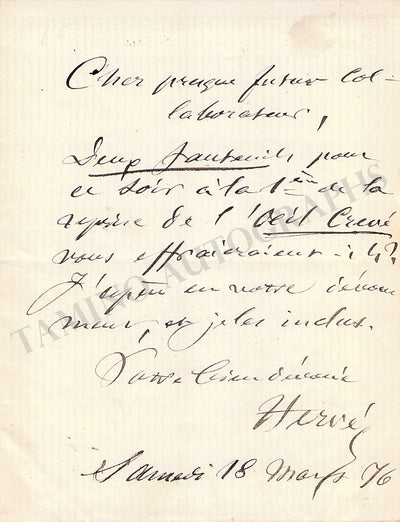 Cher presque futur col-
laborateur,
Deux fauteuils pour
ce soir à la 1ère de la
reprise de l'Oeil Crevé
vous effraieraient-ils ?
J'espère en votre dévoue
ment, et je les inclus.
Votre bien dévoué
Hervé
Samedi 18 Mars 76
TAMINO AUTOGRAPHS